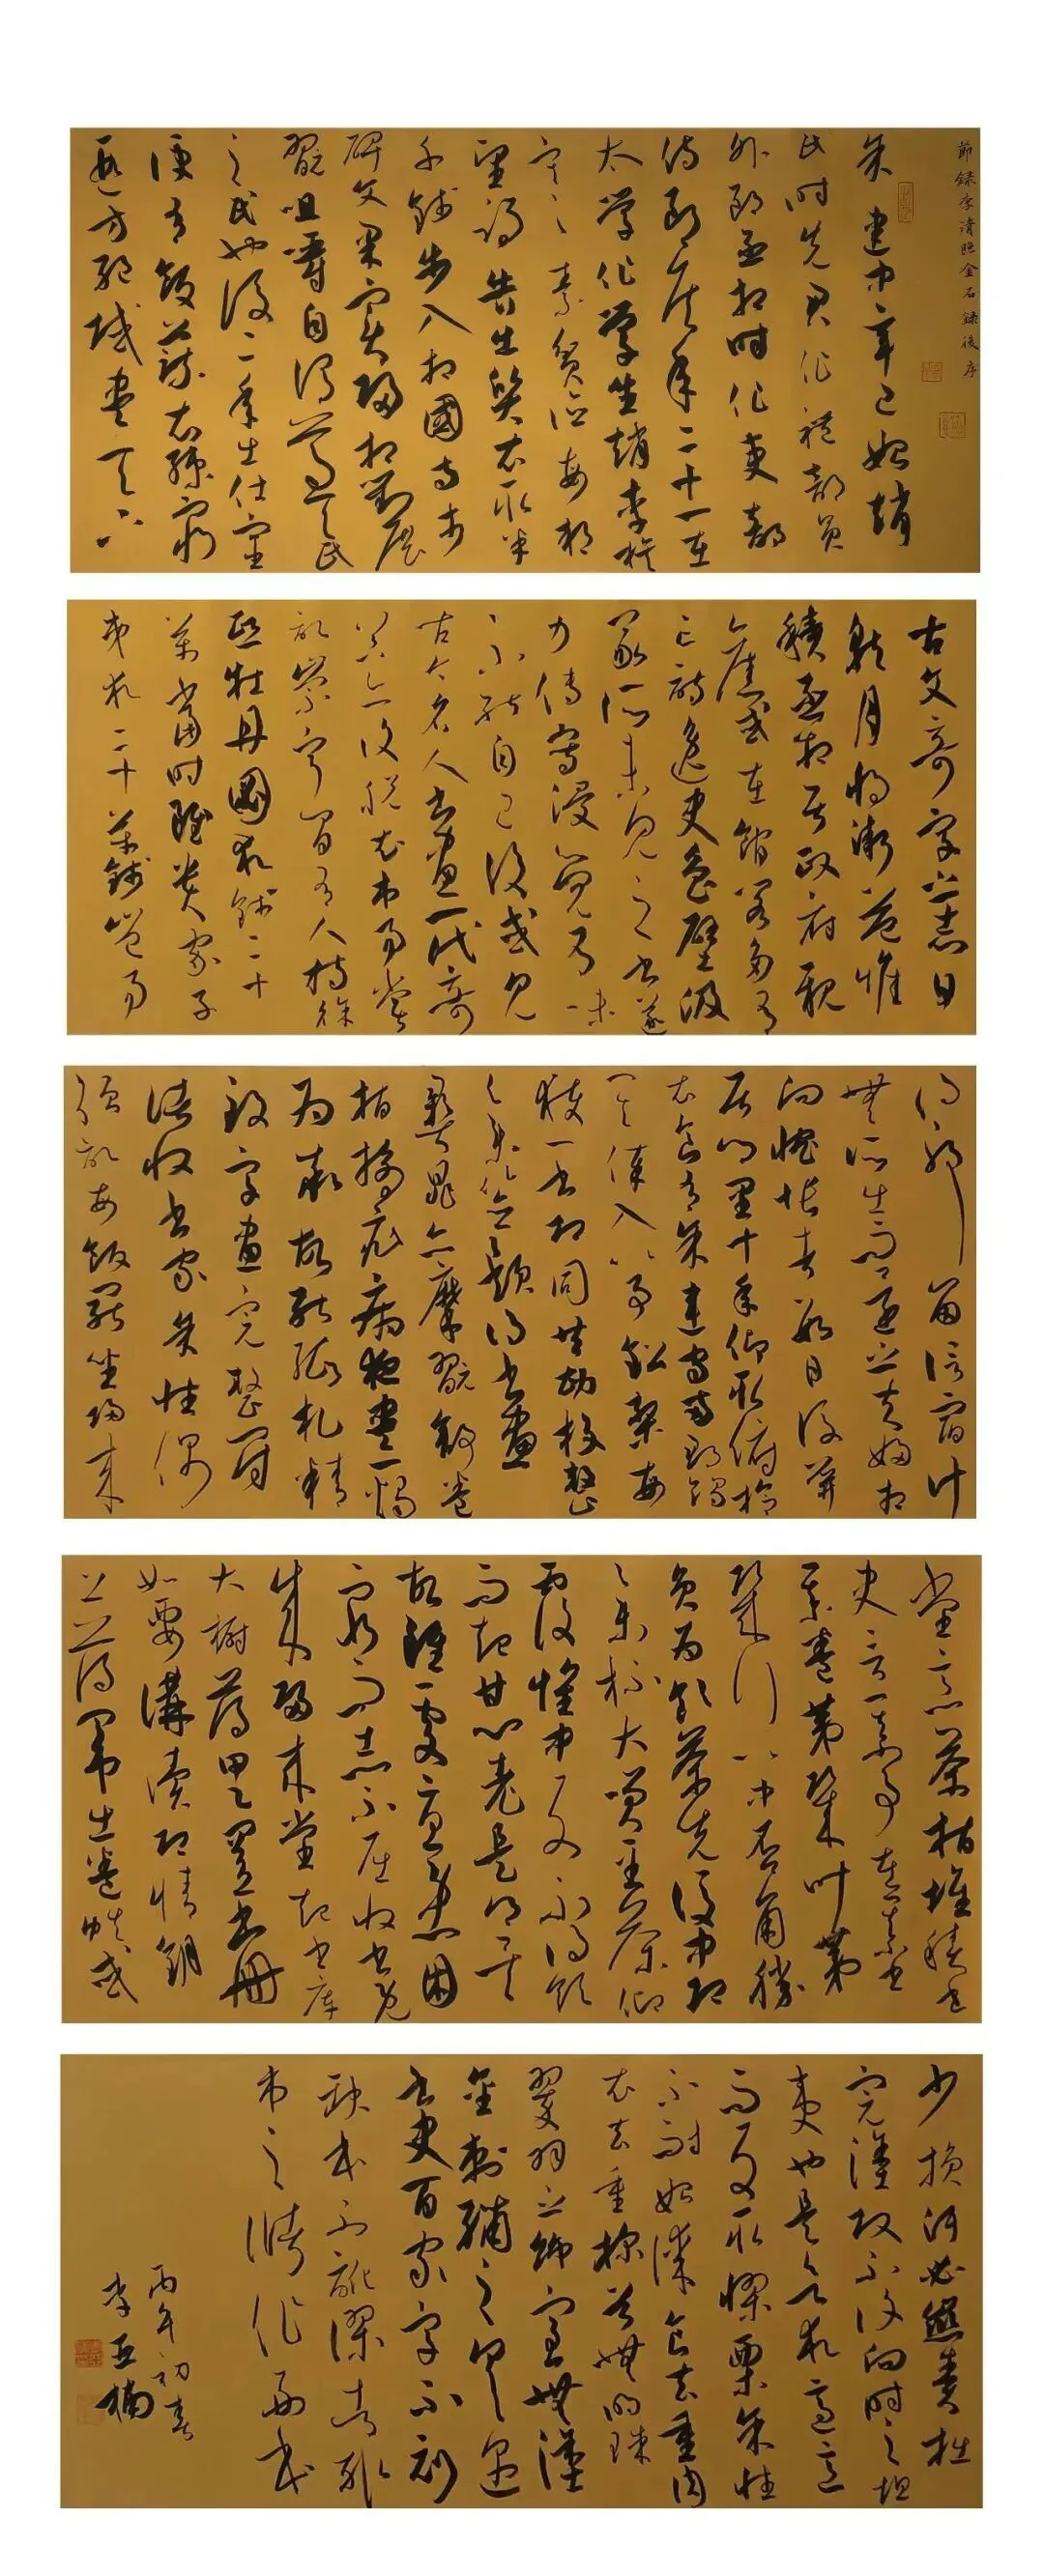 節録李清照金石録後序
余建中辛巳始趙
氏時先君作禮部員
外郎丞相時作吏部
侍郎侯年二十一在
太學作學生趙李族
寒素貧儉每朔
望謁告出質衣取半
千錢步入相國寺市
碑文果實歸相對展
翫咀嚼自謂葛天氏
之民也後二年出仕宦
便有飯蔬衣練窮
遐方絕域盡天下
古文奇字之志日
就月將漸益堆
積丞相居政府親
舊或在館閣多有
亡詩逸史魯壁汲
冢所未見之書遂
力傳寫浸覺有味
不能自已後或見
古今名人書畫一代奇
器亦復脫衣市易嘗
記崇寧間有人持徐
熙牡丹圖求錢二十
萬當時雖貴家子
弟求二十萬錢豈易
得耶留信宿計
無所出而還之夫婦相
向惋悵者數日後屏
居鄉里十年仰取俯拾
衣食有餘連守兩郡竭
其俸入以事鉛槧每
獲一書即同共勘校整
集籤題得書畫
彝鼎亦摩翫舒卷
指摘疵病夜盡一燭
為率故能紙札精
致字畫完整冠
諸收書家余性偶
強記每飯罷坐歸來
堂烹茶指堆積書
史言某事在某書
某卷第幾葉第
幾行以中否角勝
負為飲茶先後中即
舉杯大笑至茶傾
覆懷中反不得飲
而起甘心老是鄉矣
故雖處憂患困
窮而志不屈收書既
成歸來堂起書庫
大櫥簿甲乙置書冊
如要講讀即請鑰
上簿關出卷帙或
少損污必懲責揩
完塗改不復向時之坦
夷也是欲求適意
而反取憀慄余性
不耐始謀食去重肉
衣去重采首無明珠
翠羽之飾室無塗
金刺繡之具遇
書史百家字不刓
缺本不訛謬者輒
市之儲作副本
丙午初春
李亞楠